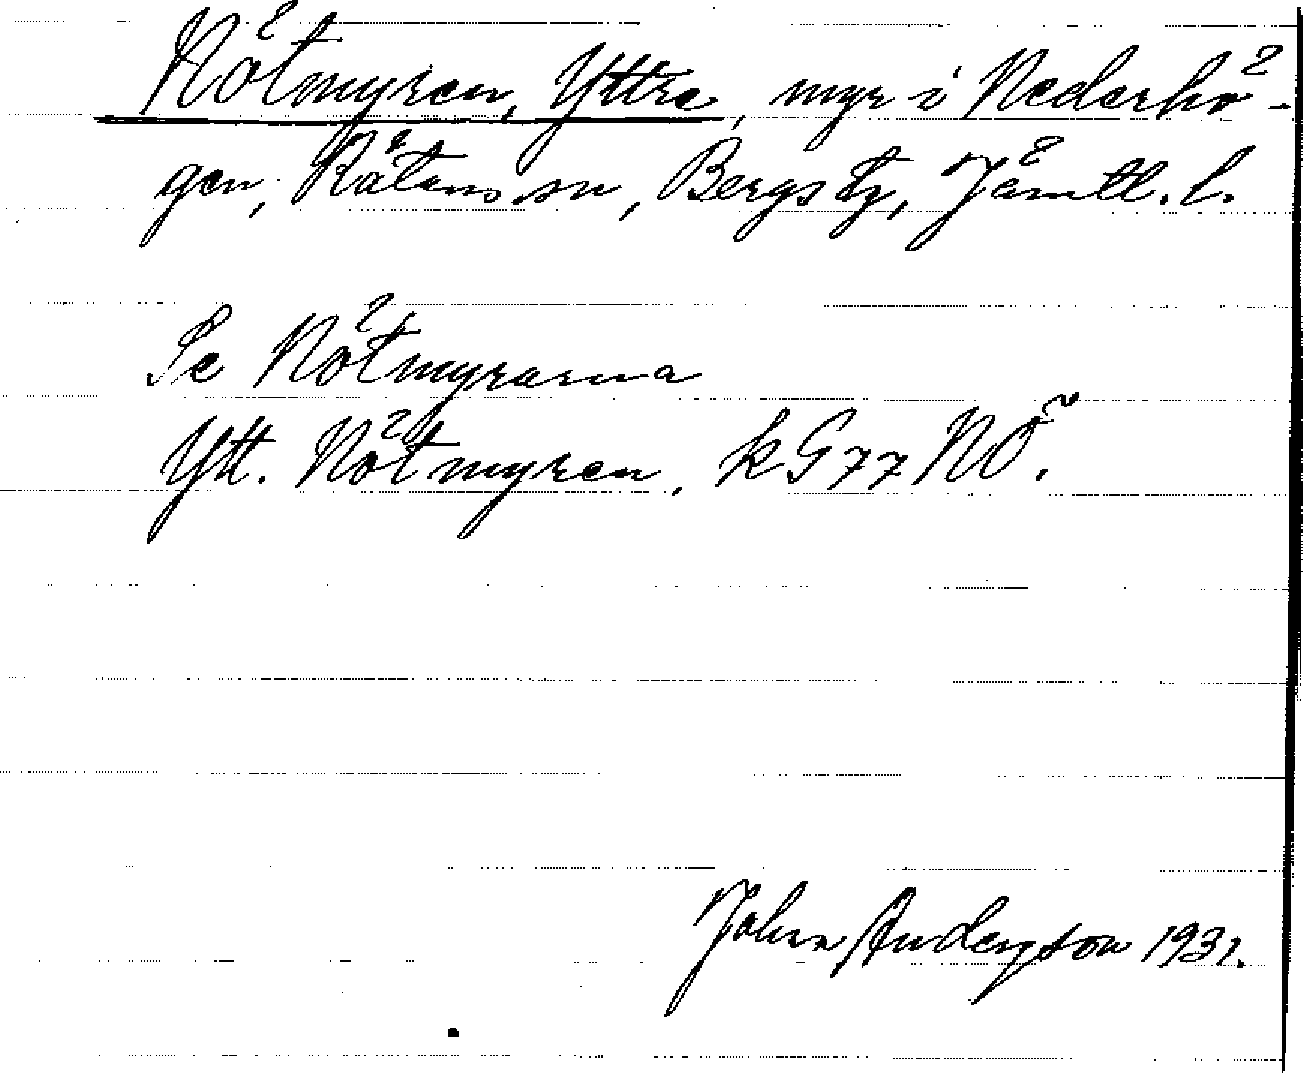 Nötmyren, Yttre, myr i Nederhö-
gen, Rätans sn, Bergs tg, Jämtl. l.
Se Nötmyrarna
Ytt. Nötmyren, k G77 NÖ.
John Anderson 1931.